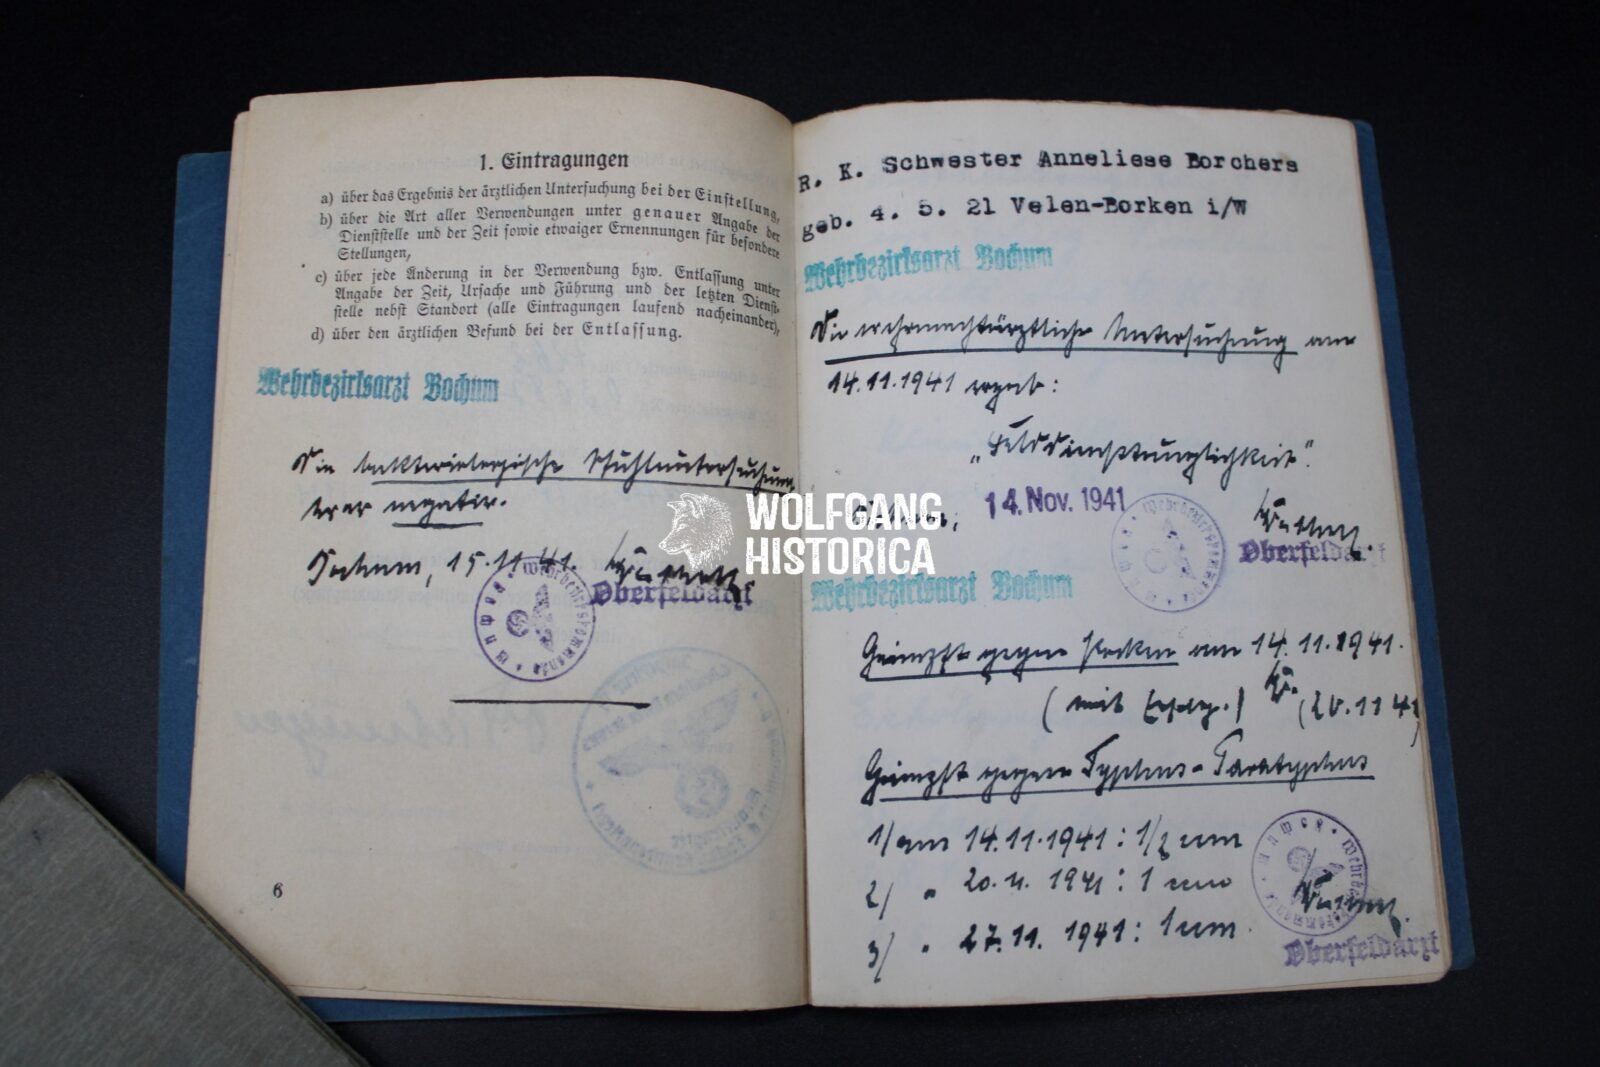 1. Eintragungen
a) über das Ergebnis der ärztlichen Untersuchung bei der Einstellung,
b) über die Art aller Verwendungen unter genauer Angabe der
Dienststelle und der Zeit sowie etwaiger Ernennungen für besondere
Stellungen,
c) über jede Änderung in der Verwendung bzw. Entlassung unter
Angabe der Zeit, Ursache und Führung und der letzten Dienst-
stelle nebst Standort (alle Eintragungen laufend nacheinander),
d) über den ärztlichen Befund bei der Entlassung.
Wehrbezirksarzt Bochum
Die bakteriologische Stuhluntersuchung
war negativ.
Bochum, 15.11.41.
Oberfeldarzt
6
R. K. Schwester Anneliese Borchers
geb. 4. 5. 21 Velen-Borken i/W
Wehrbezirksarzt Bochum
Die wehrmachtärztliche Untersuchung am
14.11.1941 ergab:
„Felddiensttauglichkeit".
14. Nov. 1941
Oberfeldarzt
Wehrbezirksarzt Bochum
Geimpft gegen Pocken am 14.11.1941.
(mit Erfolg.) (20.11.41)
Geimpft gegen Typhus-Paratyphus
1/ am 14.11.1941: 1/2 ccm
2/ " 20.11.1941: 1 ccm
3/ " 27.11.1941: 1 ccm.
Oberfeldarzt
WOLFGANG
HISTORICA